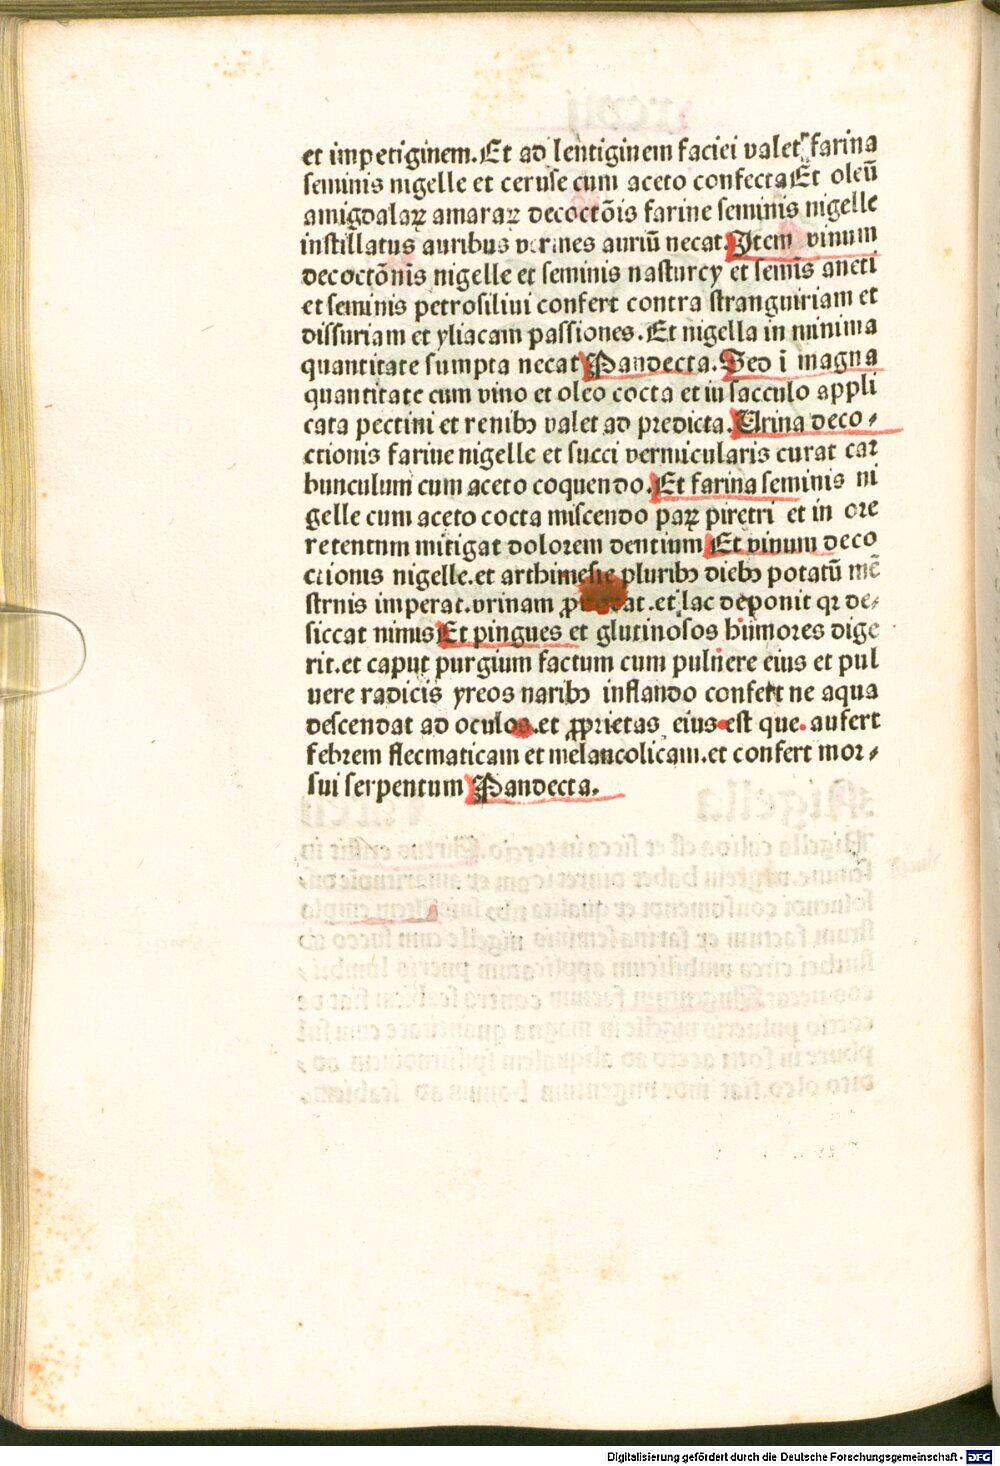 et impetiginem.Et ad lentiginem faciei valet farina
seminis nigelle et ceruse cum aceto confecta Et oleū
amigdalaꝝ amaraꝝ decoctōis farine seminis nigelle
instillatus auribus vermes auriū necat.Item vinum
decoctōnis nigelle et seminis nasturcy et semīs aneti
et seminis petrosilini confert contra stranguiriam et
dissuriam et yliacam passiones.Et nigella in minima
quantitate sumpta necat Pandecta.Sed ī magna
quantitate cum vino et oleo cocta et in sacculo appli
cata pectini et renibꝫ valet ad predicta.Urina deco⸗
ctionis farine nigelle et succi vermicularis curat car
bunculum cum aceto coquendo.Et farina seminis ni
gelle cum aceto cocta miscendo paꝝ piretri et in ore
retentum mitigat dolorem dentium Et vinum deco
ctionis nigelle.et arthimesie pluribꝫ diebꝫ potatū mē
struis imperat.vrinam .et lac deponit qꝛ de⸗
siccat nimis Et pingues et glutinosos humores dige
rit.et caput purgium factum cum puluere eius et pul
uere radicis yreos naribꝫ inflando confert ne aqua
descendat ad oculos.et ꝓprietas eius est que aufert
febrem flecmaticam et melancolicam.et confert mor⸗
sui serpentum Pandecta.
Digitalisierung gefördert durch die Deutsche Forschungsgemeinschaft - DFG